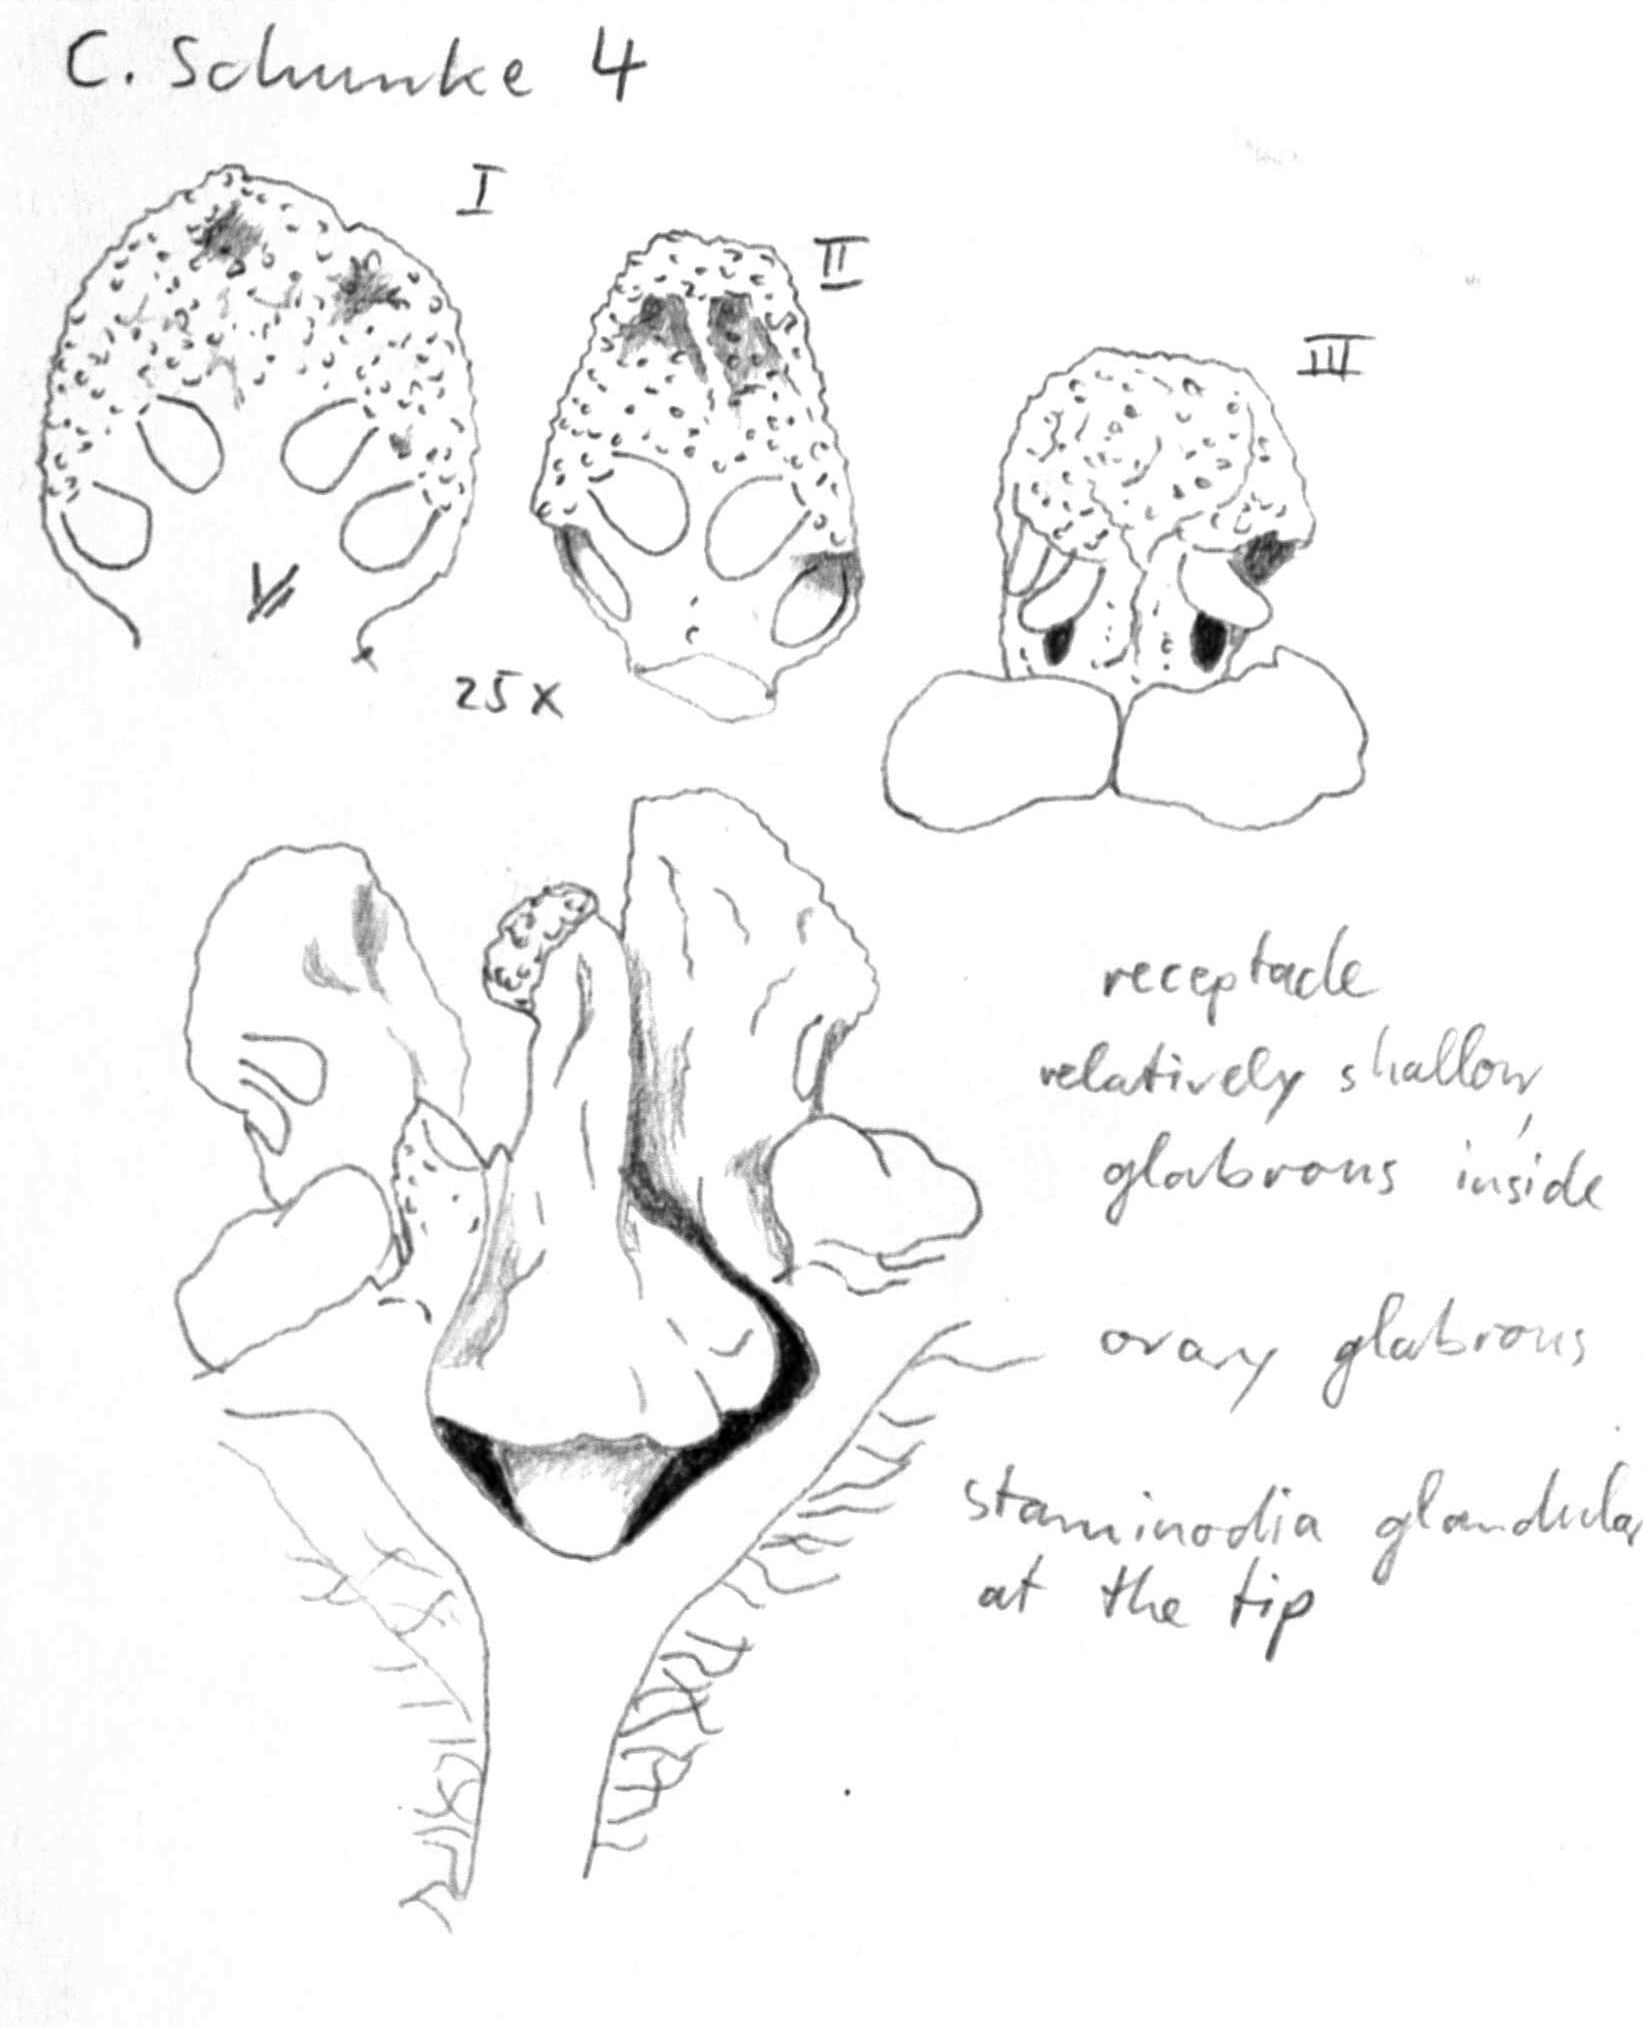 C. Schunke 4
I
II
III
25x
receptacle
relatively shallow,
glabrous inside
ovary glabrous
staminodia glandular
at the tip